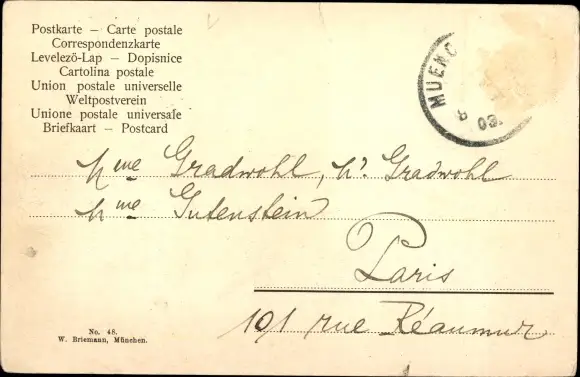 Postkarte – Carte postale
Correspondenzkarte
Levelező-Lap – Dopisnice
Cartolina postale
Union postale universelle
Weltpostverein
Unione postale universale
Briefkaart – Postcard
MUENC
8 03.
Mme Gradwohl, Mr. Gradwohl
Mme Gutenstein
Paris
101 rue Réaumur
No. 48.
W. Briemann, München.